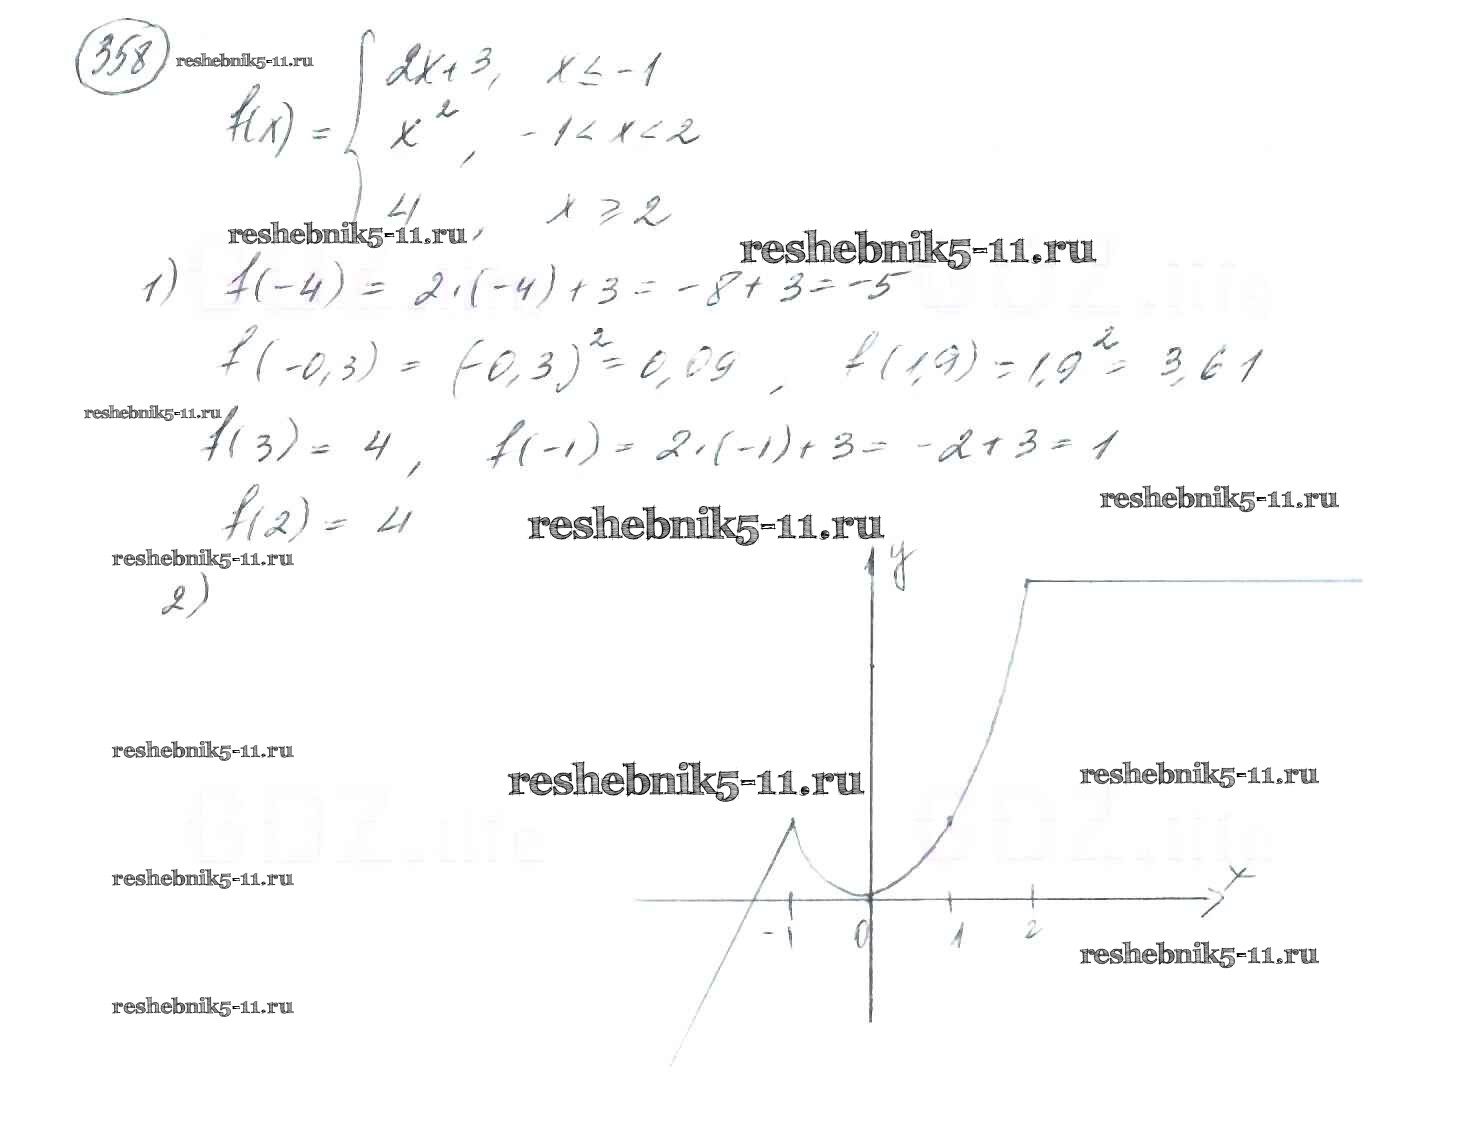 358 reshebnik5-11.ru
2x+3, x ≤ -1
f(x) = { x², -1 < x < 2
4, x ≥ 2
reshebnik5-11.ru reshebnik5-11.ru
1) f(-4) = 2·(-4)+3 = -8+3 = -5
f(-0,3) = (-0,3)² = 0,09, f(1,9) = 1,9² = 3,61
reshebnik5-11.ru
f(3) = 4, f(-1) = 2·(-1)+3 = -2+3 = 1
reshebnik5-11.ru
f(2) = 4 reshebnik5-11.ru
reshebnik5-11.ru y
2)
reshebnik5-11.ru
reshebnik5-11.ru reshebnik5-11.ru
GDZ.life GDZ.life
reshebnik5-11.ru x
-1 0 1 2
reshebnik5-11.ru
reshebnik5-11.ru